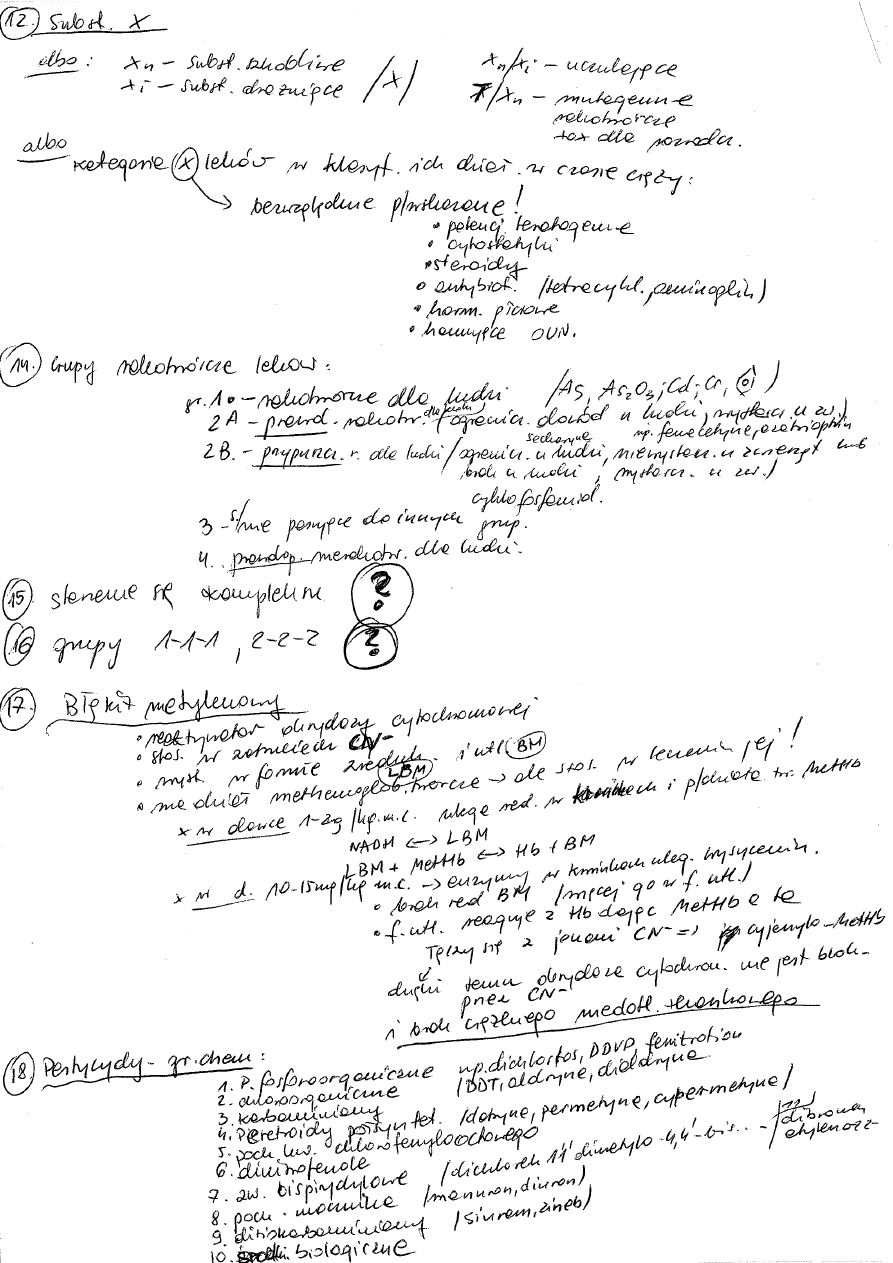 12. Subst. X
albo: Xn – subst. szkodliwe /X/ Xn/Xi – uczulające
Xi – subst. drażniące T/Xn – mutagenne
rakotwórcze
tox dla rozrodu.
albo
kategorie X leków w klasyf. ich dział. w czasie ciąży:
bezwzględnie p/wskazane!
• potencj. teratogenne
• cytostatyki
• steroidy
• antybiot. /tetracykl., aminoglik/
• horm. płciowe
• hamujące OUN.
14. Grupy rakotwórcze leków:
gr. 1 – rakotwórcze dla ludzi /As, As2O3; Cd; Cr, )
2A – prawd. rakotw. dla ludzi /ogranicz. dowód u ludzi, wystarcz. u zw./
np. fenacetyna, azatioptin
2B. – przypuszcz. r. dla ludzi /ogranicz. u ludzi, niewystarcz. u zwierząt lub
brak u ludzi, wystarcz. u zw./
cyklofosfamid.
3 – nie pasujące do innych grup.
4. prawdop. nierakotw. dla ludzi.
15. starzenie się kompleksu ?
16 grupy 1-1-1, 2-2-2 ?
17. Błękit metylenowy
• reaktywator oksydazy cytochromowej
• stos. w zatruciach CN-
• wyst. w formie zreduk. LBM i utl BM
• ma dział methemoglobinotwórcze → ale stos. w leczeniu jej!
x w dawce 1-2g /kg.m.c. ulega red. w i p/działa tw. MetHb
NADH ↔ LBM
LBM + MetHb ↔ Hb + BM
x w d. 10-15mg/kg m.c. → enzymy w krwinkach uleg. wysyceniu.
• brak red BM /więcej go w f. utl./
• f. utl. reaguje z Hb dając MetHb a ta
łączy się z jonami CN- => cyjanylo-MetHb
↓
dzięki temu oksydaza cytochrom. nie jest blok-
przez CN-
i brak ciężkiego niedotl. tkankowego
18 Pestycydy – zw. chem:
1. P. fosforoorganiczne np. dichlorfos, DDVP, fenitrotion
2. chloroorganiczne /DDT, aldryna, dieldryna
3. karbaminiany
4. Peretroidy posyntet. /detryna, permetryna, cypermetryna/
5. poch. kw. chlorofenylooctowego
6. dinitrofenole
7. zw. bispirydylowe /dichlorek 11' dimetylo-4,4'-bis... – /dibromek etyleno
8. poch. mocznika /monuron, diuron)
9. ditiokarbaminiany /siuram, zineb)
10. biologiczne